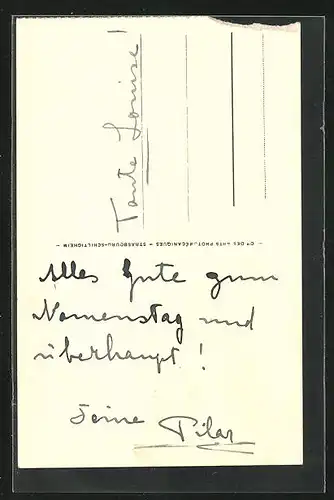 Tante Louise!
Cie DES ARTS PHOTOMÉCANIQUES - STRASBOURG-SCHILTIGHEIM -
Alles Gute zum
Namenstag und
überhaupt!
Deine Pilar